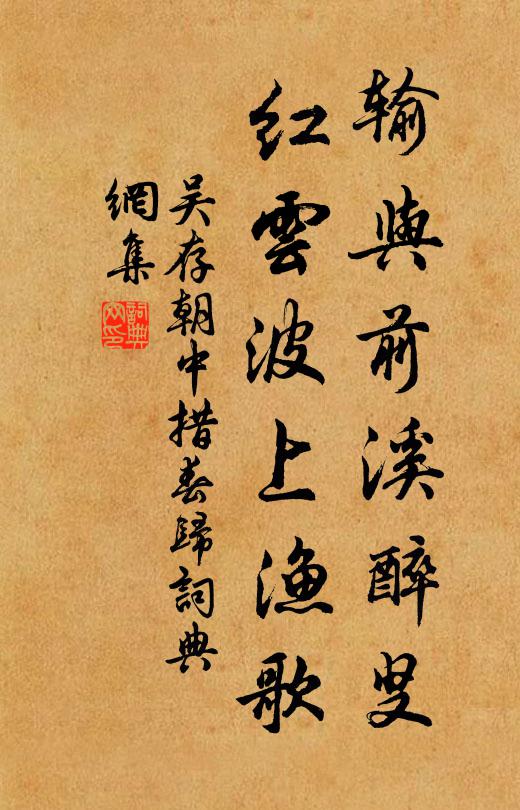 輸與前溪醉叟
紅雲波上漁歌
吴存朝中措春歸詞典
網集
詞典